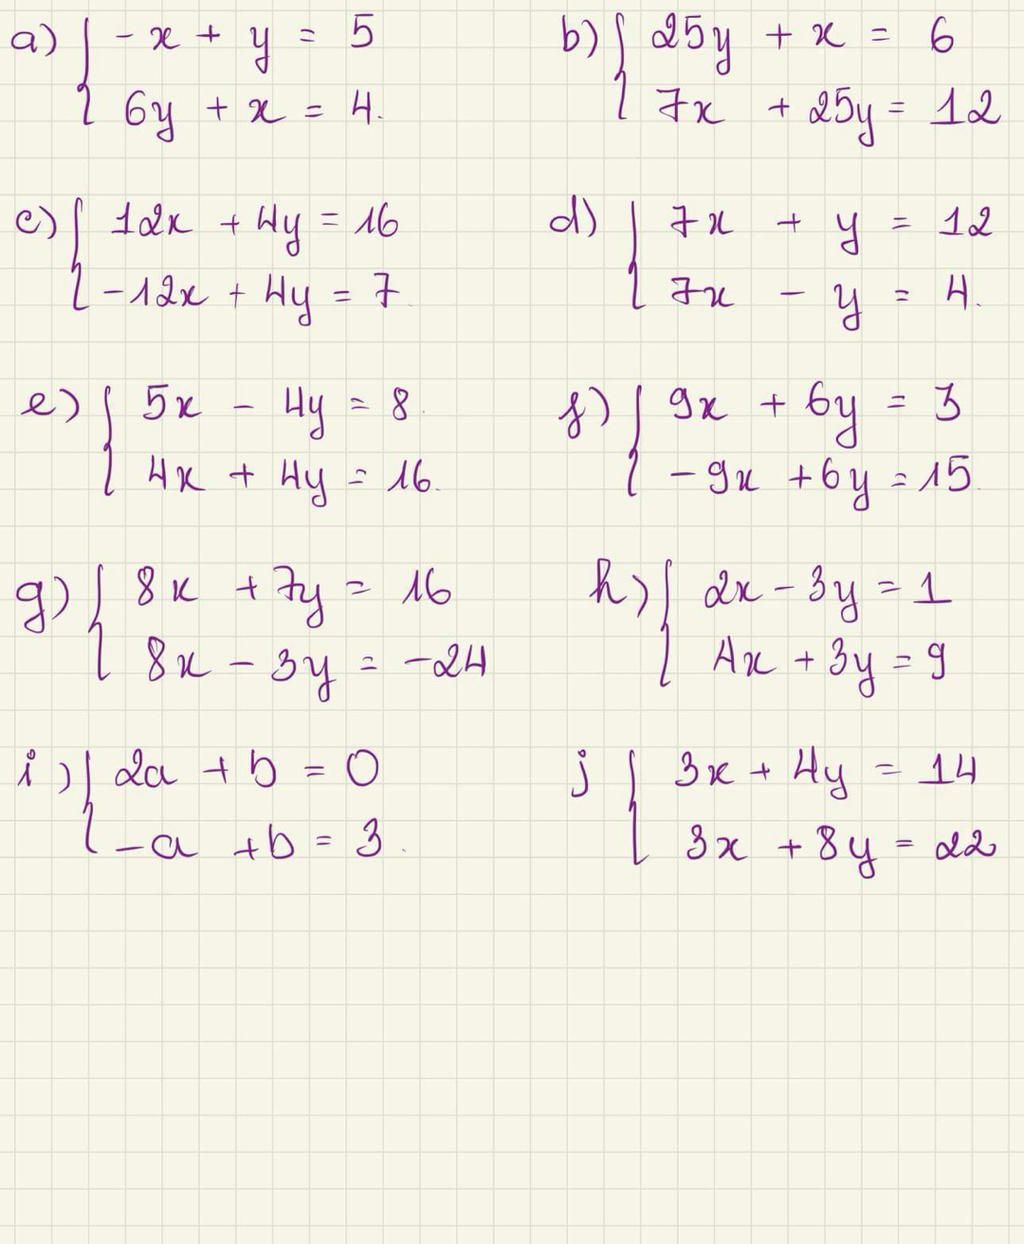 a) { - x + y = 5
6y + x = 4.
b) { 25y + x = 6
7x + 25y = 12
c) { 12x + 4y = 16
-12x + 4y = 7.
d) { 7x + y = 12
7x - y = 4.
e) { 5x - 4y = 8.
4x + 4y = 16.
f) { 9x + 6y = 3
- 9x + 6y = 15.
g) { 8x + 7y = 16
8x - 3y = -24
h) { 2x - 3y = 1
4x + 3y = 9
i) { 2a + b = 0
-a + b = 3.
j { 3x + 4y = 14
3x + 8y = 22